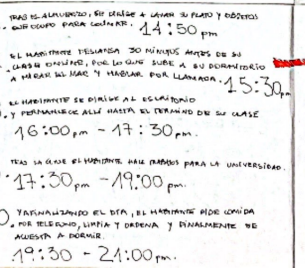 TRAS EL ALMUERZO, SE DIRIGE A LAVAR SU PLATO Y OBJETOS
QUE OCUPO PARA COCINAR. 14:50 pm
EL HABITANTE DESCANSA 30 MINUTOS ANTES DE SU
CLASE ONLINE, POR LO QUE SUBE A SU DORMITORIO
A MIRAR EL MAC Y HABLAR POR LLAMADA. 15:30pm
EL HABITANTE SE DIRIGE AL ESCRITORIO
Y PERMANECE ALLÍ HASTA EL TERMINO DE SU CLASE
16:00 pm - 17:30 pm.
TRAS LA CLASE EL HABITANTE HACE TRABAJOS PARA LA UNIVERSIDAD.
17:30 pm - 19:00 pm.
YA FINALIZANDO EL DÍA, EL HABITANTE PIDE COMIDA
POR TELEFONO, LIMPIA Y ORDENA Y FINALMENTE SE
ACUESTA A DORMIR.
19:30 - 21:00 pm.